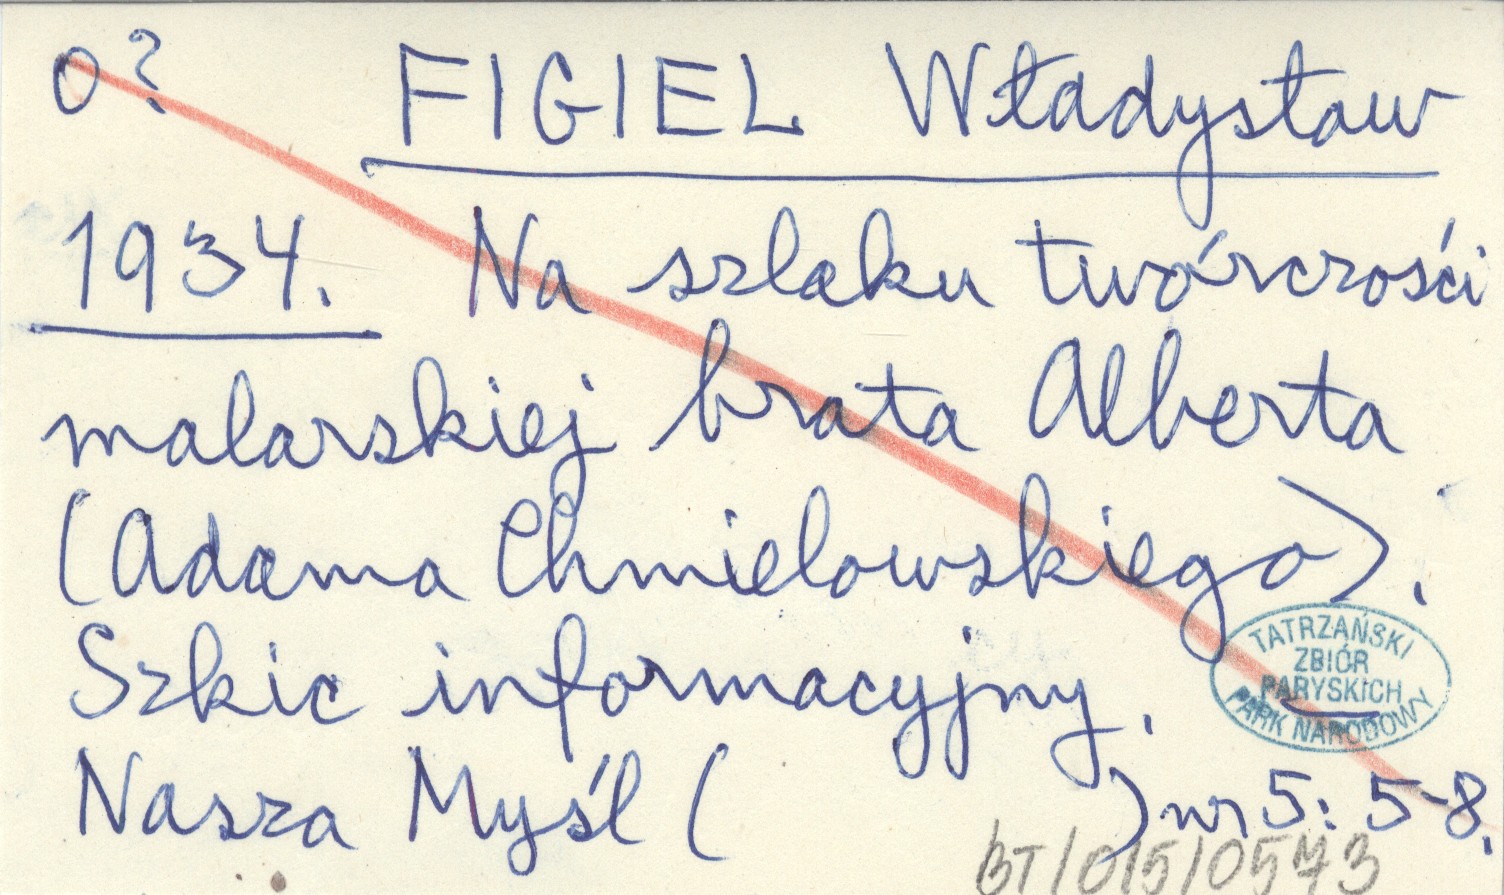 o? FIGIEL Władysław
1934. Na szlaku twórczości
malarskiej brata Alberta
(Adama Chmielowskiego).
Szkic informacyjny.
TATRZAŃSKI
ZBIÓR
PARYSKICH
PARK NARODOWY
Nasza Myśl ( ) nr 5: 5-8.
BT/015/0573